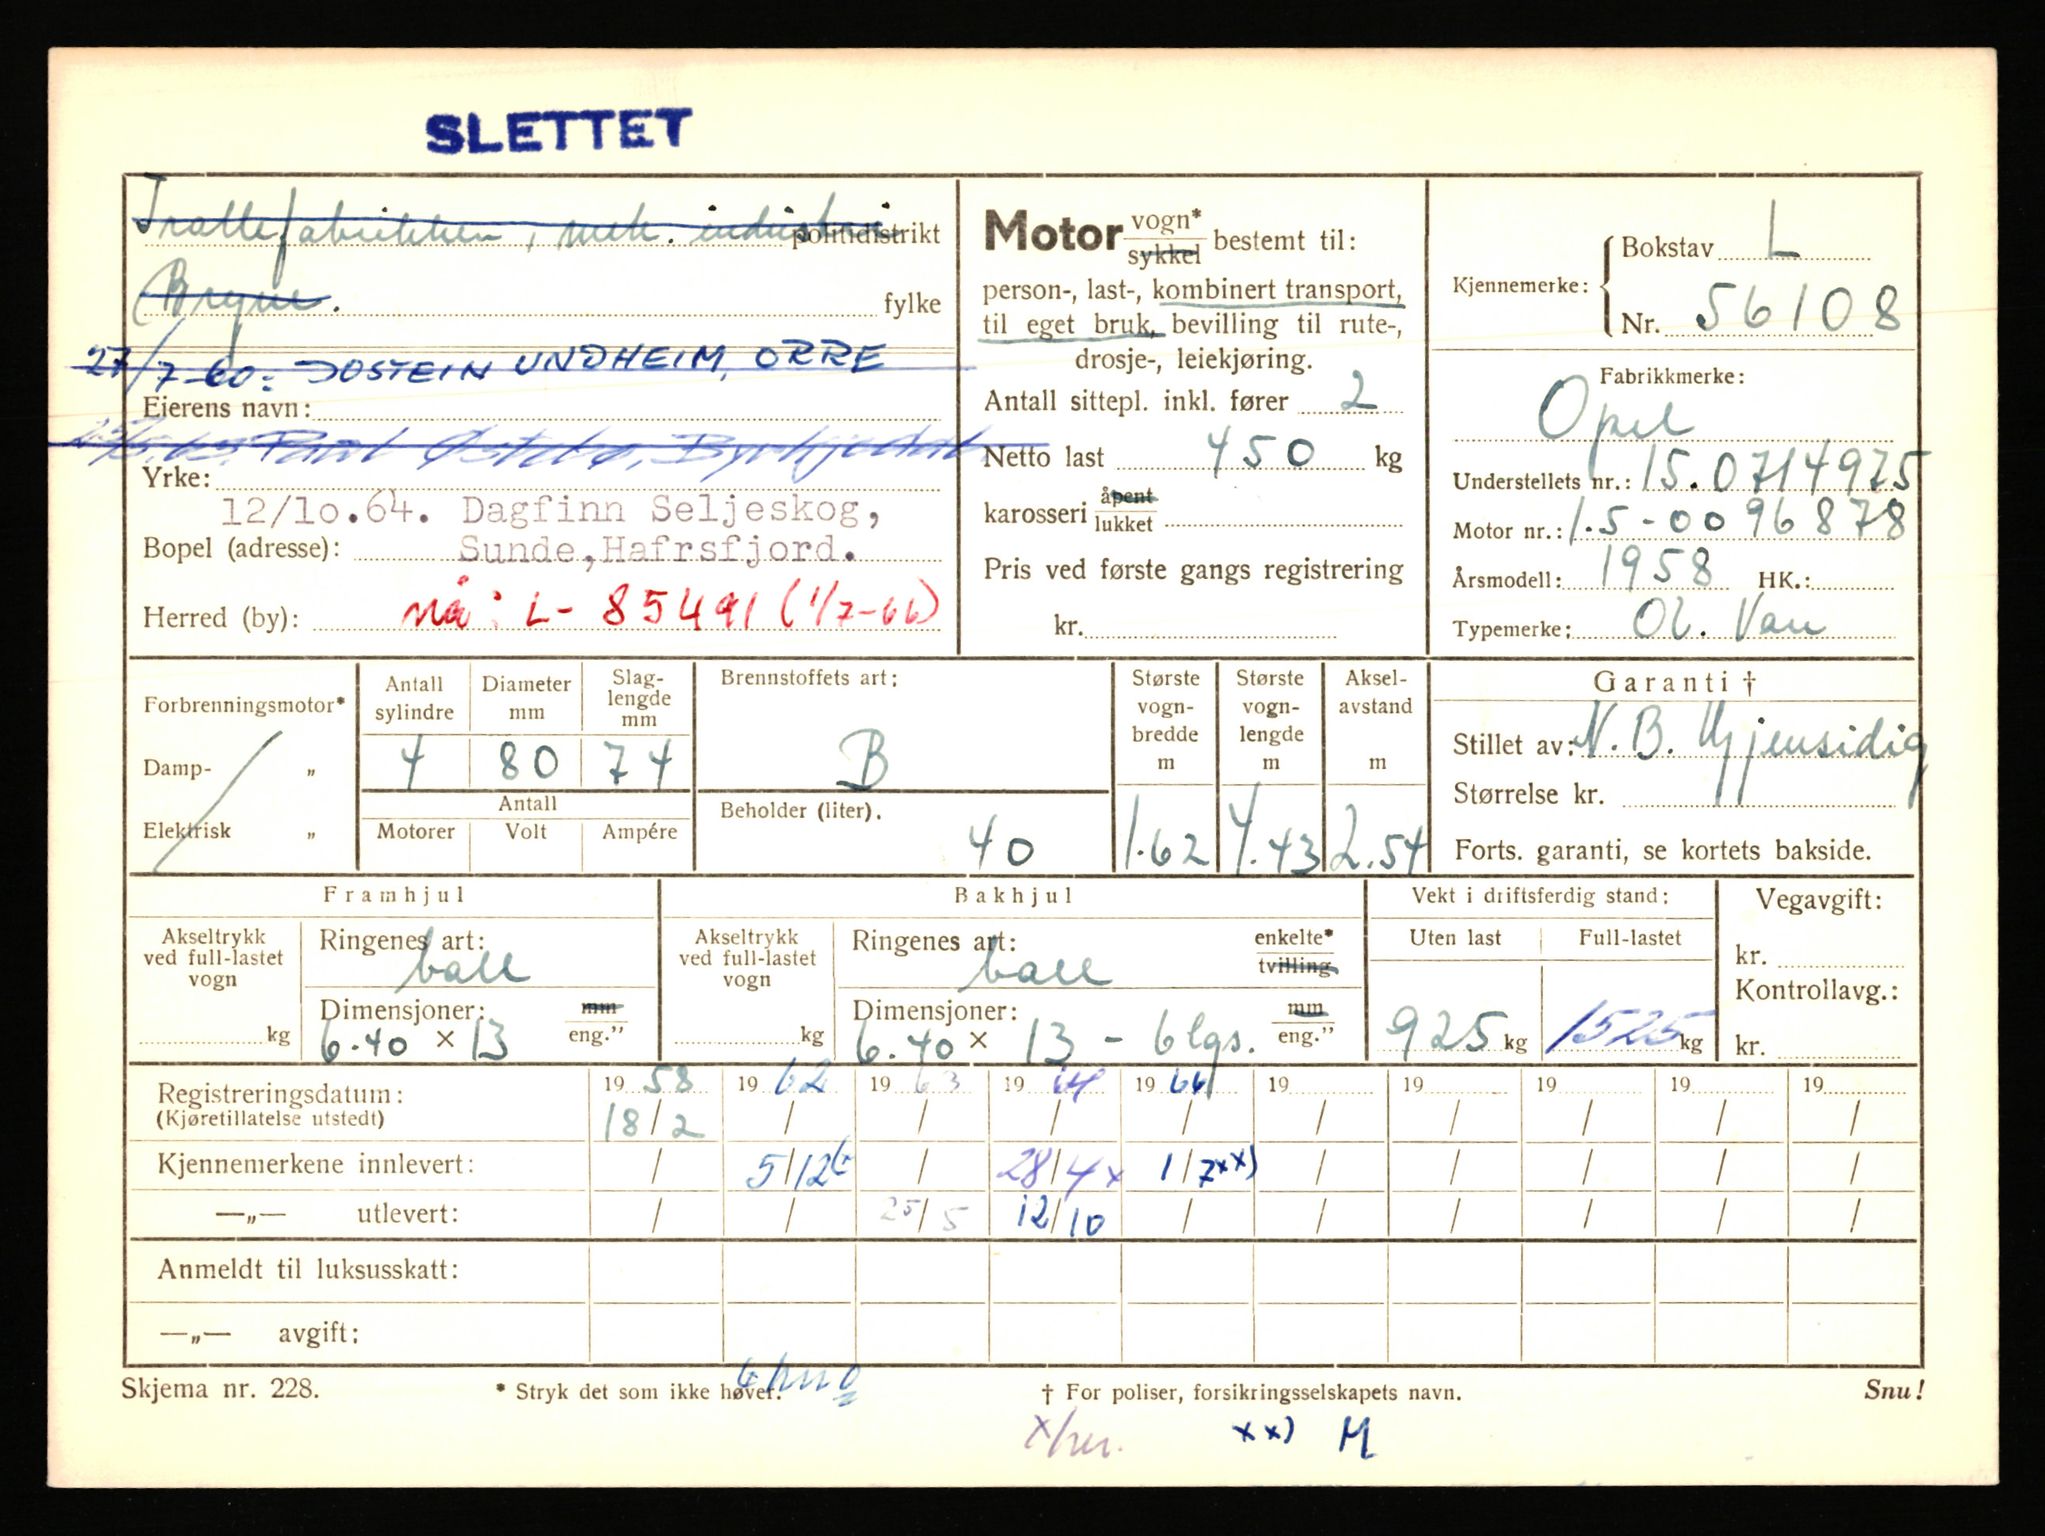 SLETTET
Trallefabrikken, mek. industri politidistrikt
Bryne. fylke
27/7-60: JOSTEIN UNDHEIM, ORRE
Eierens navn:
Yrke:
12/10.64. Dagfinn Seljeskog,
Bopel (adresse): Sunde, Hafrsfjord.
Herred (by): nå: L- 85491 (1/7-66)
Motor vogn* sykkel bestemt til:
person-, last-, kombinert transport,
til eget bruk, bevilling til rute-,
drosje-, leiekjøring.
Antall sittepl. inkl. fører 2
Netto last 450 kg
karosseri åpent lukket
Pris ved første gangs registrering
kr.
Kjennemerke: Bokstav L
Nr. 56108
Fabrikkmerke:
Opel
Understellets nr.: 15.0714975
Motor nr.: 1.5-0096878
Årsmodell: 1958 HK.:
Typemerke: Ol. Van
Forbrenningsmotor*
Damp- „
Elektrisk „
Antall sylindre Diameter mm Slag-lengde mm
4 80 74
Antall
Motorer Volt Ampére
Brennstoffets art:
B
Beholder (liter).
40
Største vogn-bredde m
1.62
Største vogn-lengde m
4.43
Aksel-avstand m
2.54
Garanti †
Stillet av: N.B. Gjensidig
Størrelse kr.
Forts. garanti, se kortets bakside.
Framhjul
Akseltrykk ved full-lastet vogn
kg
Ringenes art:
ball
Dimensjoner: mm eng."
6.40 × 13
Bakhjul
Akseltrykk ved full-lastet vogn
kg
Ringenes art: enkelte* tvilling
ball
Dimensjoner: mm eng."
6.40 × 13 - 6 lgs.
Vekt i driftsferdig stand:
Uten last Full-lastet
925 kg 1525 kg
Vegavgift:
kr.
Kontrollavg.:
kr.
Registreringsdatum: 19 58 19 62 19 63 19 64 19 66 19 19 19 19 19
(Kjøretillatelse utstedt) 18/2 / / / / / / / / /
Kjennemerkene innlevert: / 5/12 / 28/4 x 1/7 xx) / / / / /
—„— utlevert: / / 25/5 12/10 / / / / / /
Anmeldt til luksusskatt:
—„— avgift:
Skjema nr. 228. * Stryk det som ikke høver. † For poliser, forsikringsselskapets navn. Snu!
xx) M